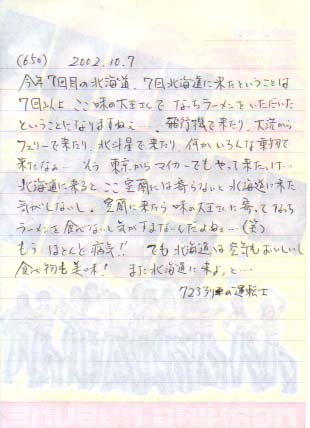 (650) 2002.10.7
今年7回目の北海道。7回北海道に来たということは
7回以上 ここ味の大王さんで なっちラーメンをいただいた
ということになりますねぇ…。飛行機で来たり、大洗から
フェリーで来たり、北斗星で来たり 何か いろんな乗物で
来たなぁ… そう 東京からマイカーでもやって来たっけ…
北海道に来ると ここ室蘭には寄らないと北海道に来た
気がしないし。室蘭に来たら味の大王さんに寄ってなっち
ラーメンを食べないと気がすまなーしたよねぇ…(笑)
もう ほとんど病気!! でも北海道は空気もおいしいし
食べ物も美味! また北海道に来よっと…
723列車の運転士
MORNING MUSUME